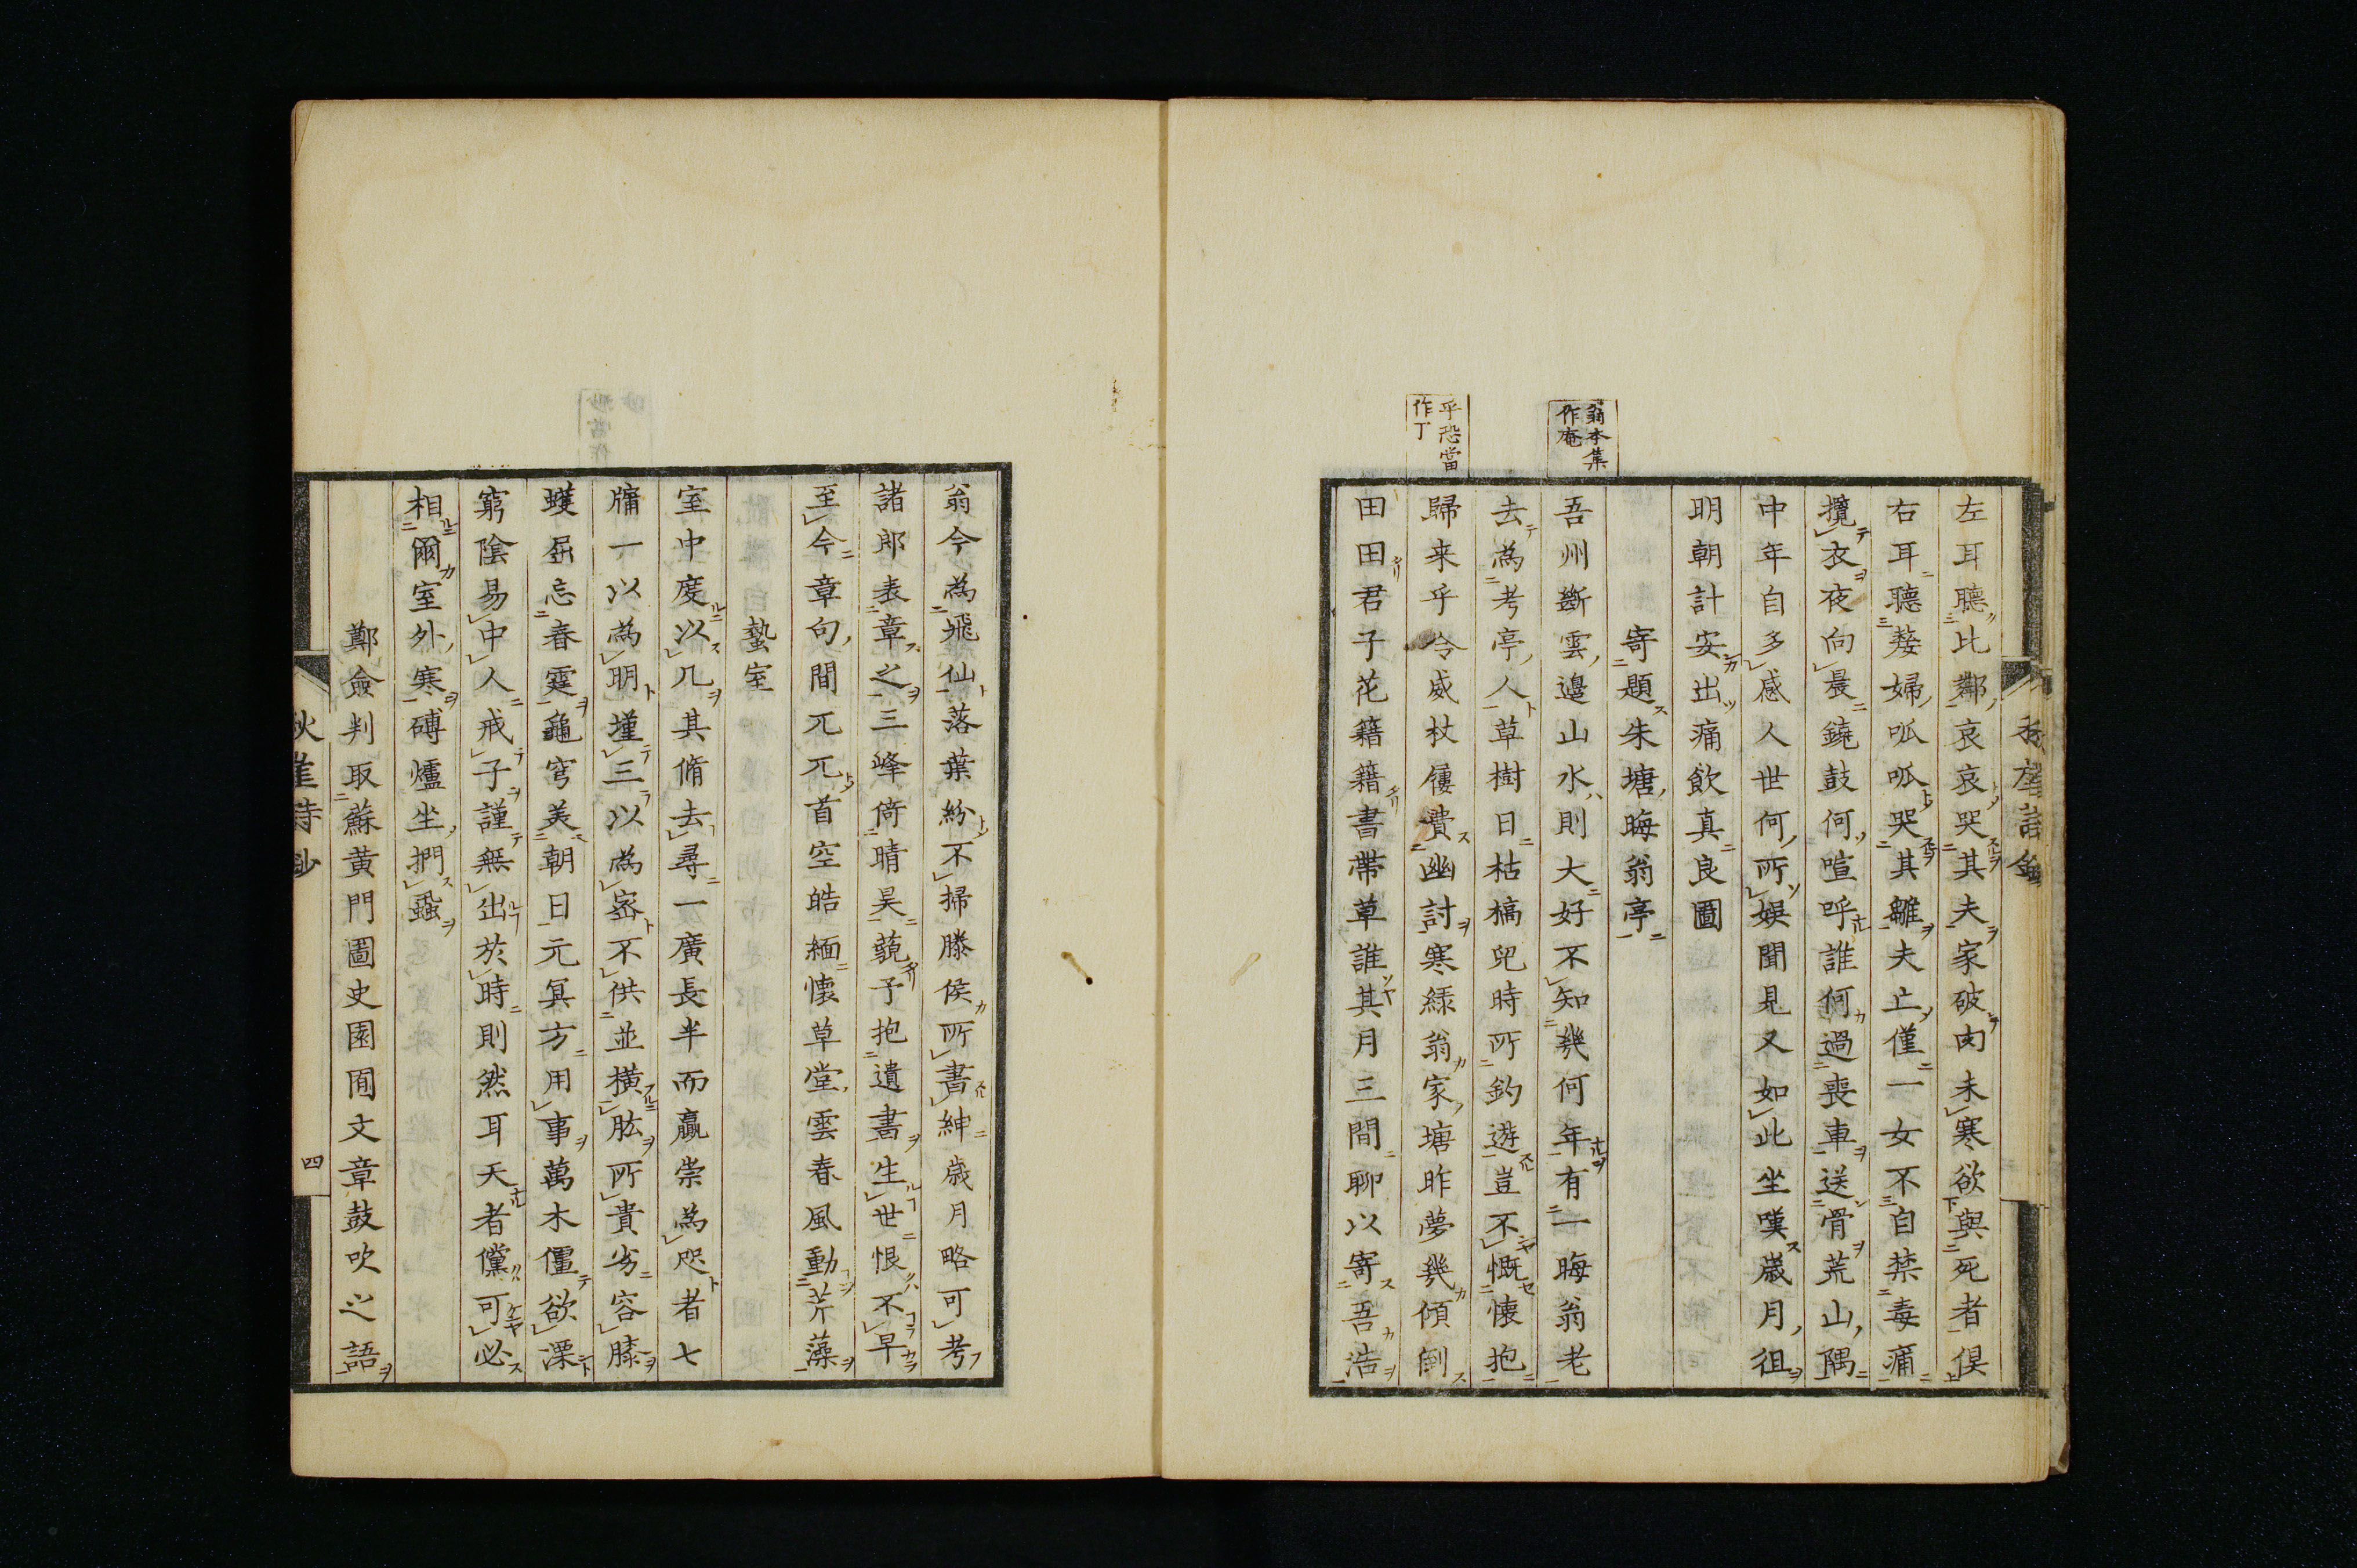 左耳聽比鄰哀哀哭其夫家破肉未寒欲與死者俱
右耳聽嫠婦呱呱哭其雛夫亡僅一女不自禁毒痛
攬衣夜向晨鐃鼓何喧呼誰何過喪車送骨荒山隅
中年自多感人世何所娛聞見又如此坐嘆歳月徂
明朝計安出痛飲真良圖
寄題朱塘晦翁亭
翁本集
作庵
吾州斷雲邊山水則大好不知幾何年有一晦翁老
去為考亭人草樹日枯槁兒時所釣遊豈不慨懷抱
乎恐當
作丁
歸来乎令威杖屨費幽討寒緑翁家塘昨夢幾傾倒
田田君子花籍籍書帶草誰其月三間聊以寄吾浩
翁今為飛仙落葉紛不掃滕侯所書紳歳月略可考
諸郎表章之三峰倚晴昊藐子抱遺書生世恨不早
至今章句間兀兀首空皓緬懷草堂雲春風動芹藻
蟄室
室中度以几其脩去尋一廣長半而贏崇為咫者七
牖一以為明墐三以為密不供並横肱所貴劣容膝
蠖屈忘春霆龜穹美朝日元冥方用事萬木僵欲溧
窮陰易中人戒子謹無出於時則然耳天者儻可必
相爾室外寒磚爐坐捫蝨
鄭僉判取蘇黃門圖史園囿文章鼓吹之語
秋崖詩鈔
四